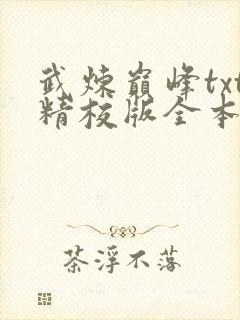 武炼巅峰txt
精校版全本
茶浮不落